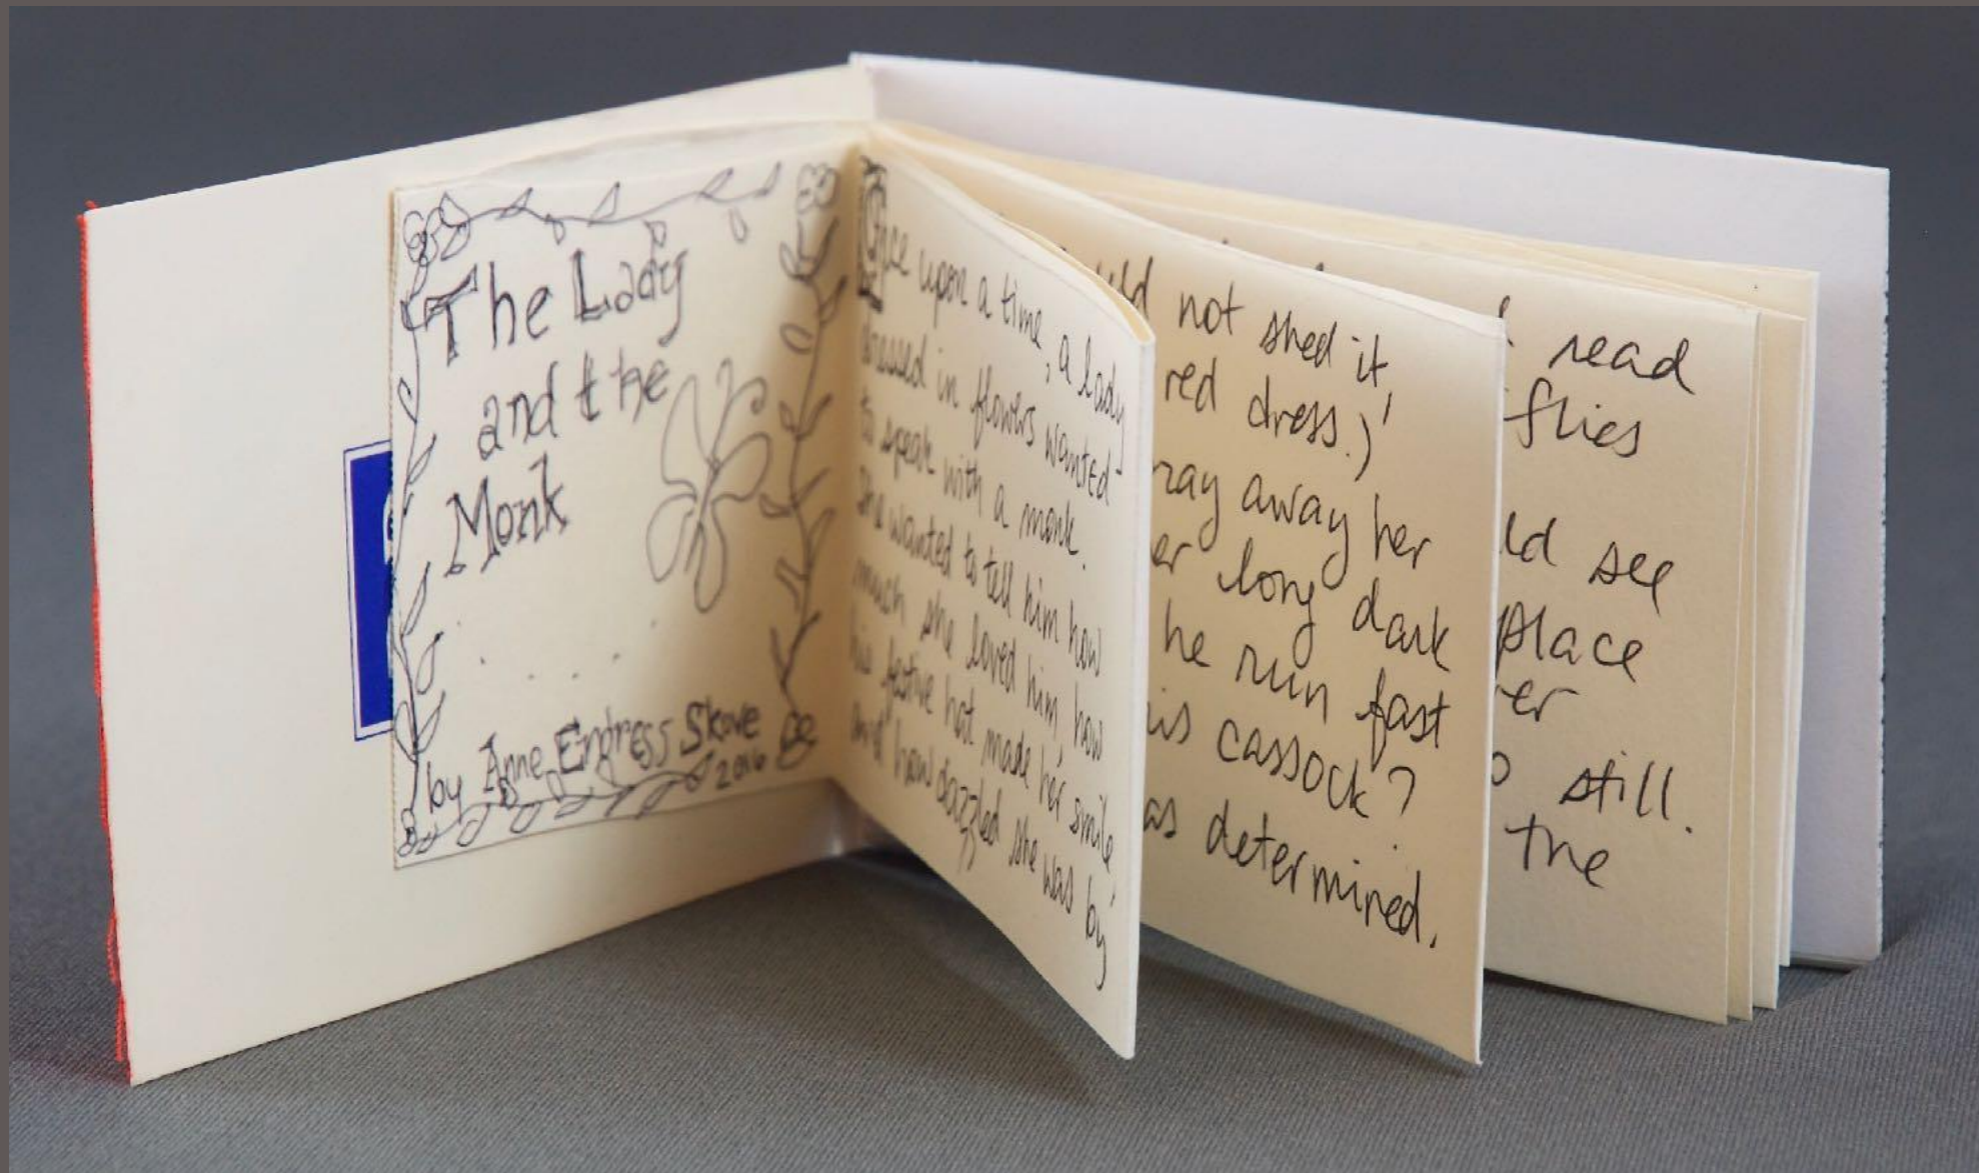 The Lady
and the
Monk
by Anne Endress Skove
2016
Once upon a time, a lady
dressed in flowers wanted
to speak with a monk.
She wanted to tell him how
much she loved him, how
his festive hat made her smile,
and how dazzled she was by
not shed it,
red dress.)
away her
long dark
he run fast
his cassock?
as determined.
read
flies
see
place
still.
the